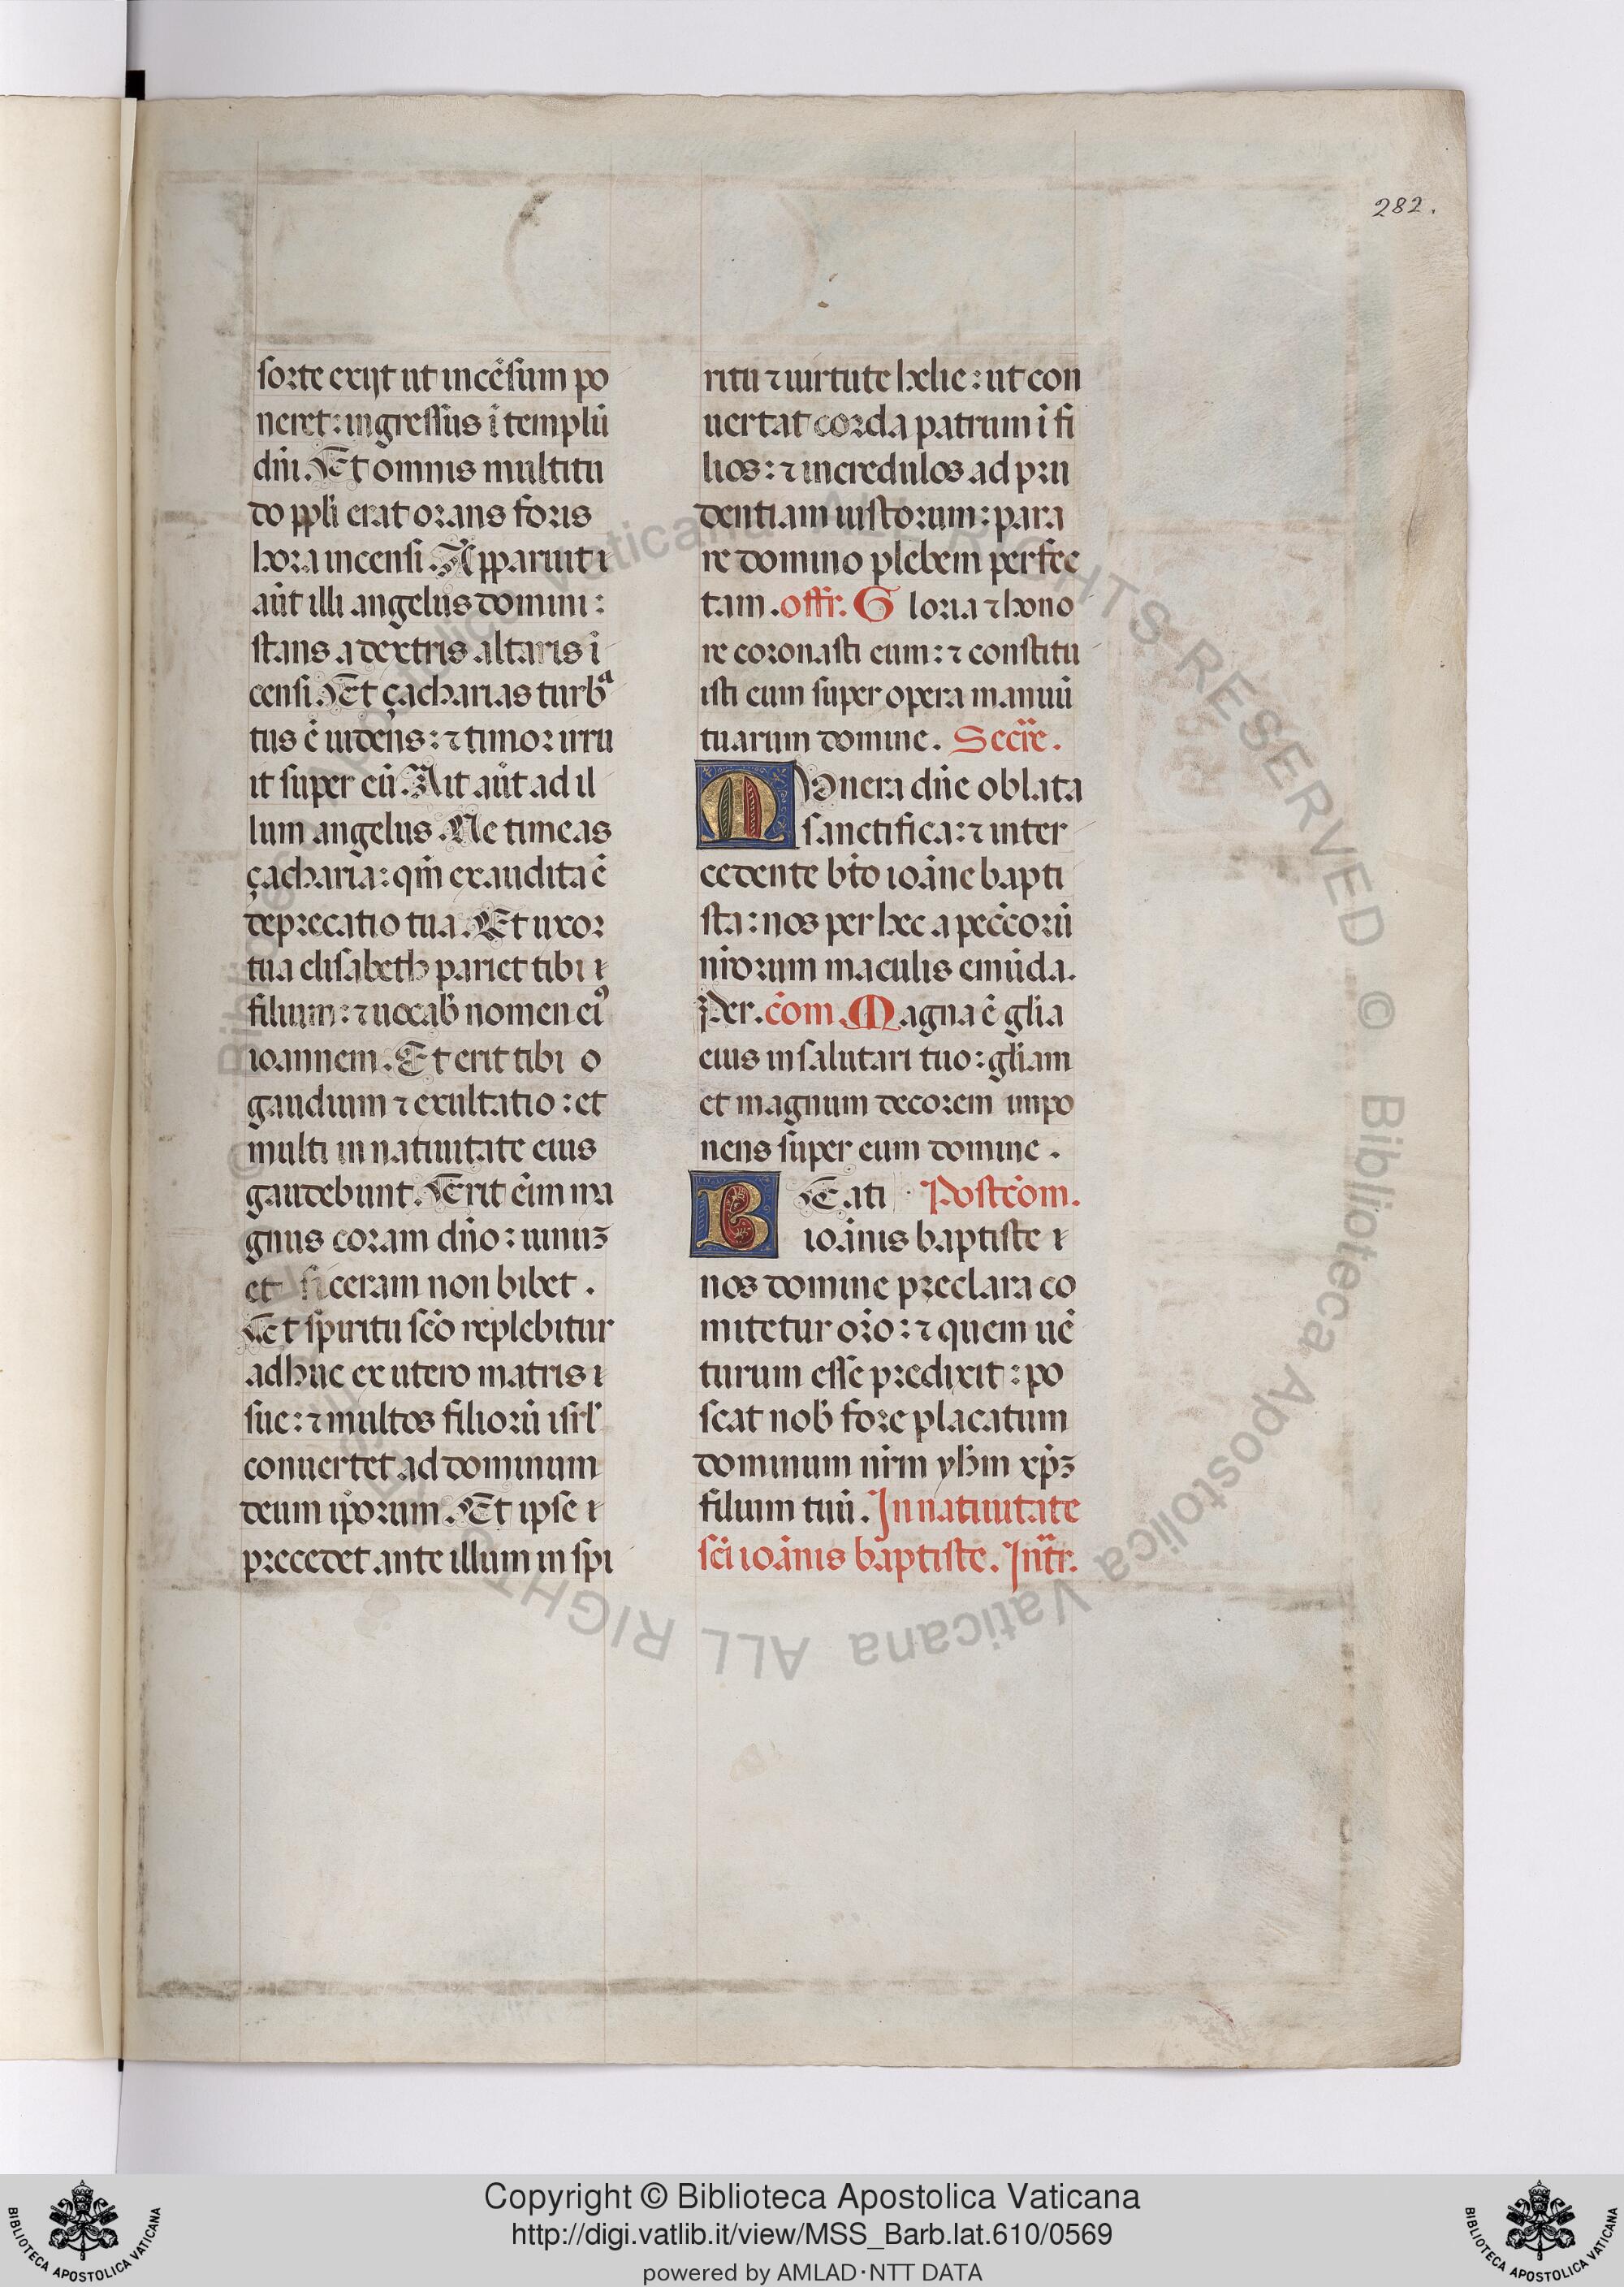 282.
sorte exijt ut incēsum po
neret: ingressus ī templū
dñi. Et omnis multitu
do ppli erat orans foris
hora incensi. Apparuit
aūt illi angelus domini:
stans a dextris altaris ī
censi. Et çacharias turbª
tus ē uidens: ⁊ timor irru
it super eū. Ait aūt ad il
lum angelus. Ne timeas
çacharia: qm̄ exaudita ē
deprecatio tua. Et uxor
tua elisabeth pariet tibi
filium: ⁊ uocab̄ nomen eiꝰ
ioannem. Et erit tibi o
gaudium ⁊ exultatio: et
multi in natiuitate eius
gaudebunt. Erit eīm ma
gnus coram dño: uinuꝫ
et siceram non bibet.
Et spiritu scō replebitur
adhuc ex utero matris
sue: ⁊ multos filiorū isrl̄
conuertet ad dominum
deum ip̄orum. Et ipse
precedet ante illum in spi
ritu ⁊ uirtute helie: ut con
uertat corda patrum ī fi
lios: ⁊ incredulos ad pru
dentiam iustorum: para
re domino plebem perfec
tam. offr. Gloria ⁊ hono
re coronasti eum: ⁊ constitu
isti eum super opera manuū
tuarum domine. Secr̄e.
Munera dñe oblata
sanctifica: ⁊ inter
cedente bt̄o ioāne bapti
sta: nos per hec a pecc̄orū
nr̄orum maculis emūda.
Per. cōm. Magna ē gl̄ia
eius in salutari tuo: gl̄iam
et magnum decorem impo
nens super eum domine.
BEati Postcōm.
ioānis baptiste
nos domine preclara co
mitetur or̄o: ⁊ quem uē
turum esse predixit: po
scat nob̄ fore placatum
dominum nr̄m yh̄m xp̄ꝫ
filium tuū. In natiuitate
sc̄i ioānis baptiste. Intr̄.
© Biblioteca Apostolica Vaticana ALL RIGHTS RESERVED
© Biblioteca Apostolica Vaticana ALL RIGHTS RESERVED
BIBLIOTECA APOSTOLICA VATICANA
Copyright © Biblioteca Apostolica Vaticana
http://digi.vatlib.it/view/MSS_Barb.lat.610/0569
powered by AMLAD·NTT DATA
BIBLIOTECA APOSTOLICA VATICANA